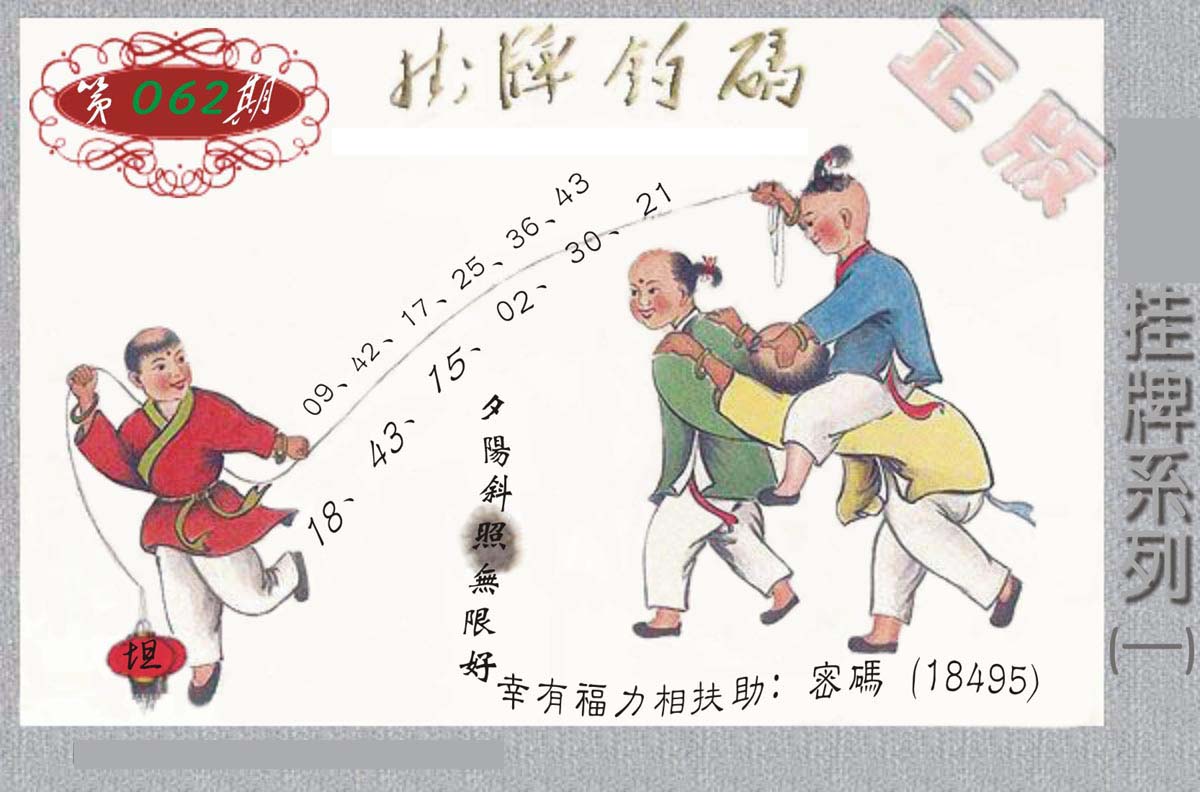 第062期
掛牌釣碼
正版
09、42、17、25、36、43
18、43、15、02、30、21
夕陽斜照無限好
坦
幸有福力相扶助：密碼(18495)
挂牌系列(一)